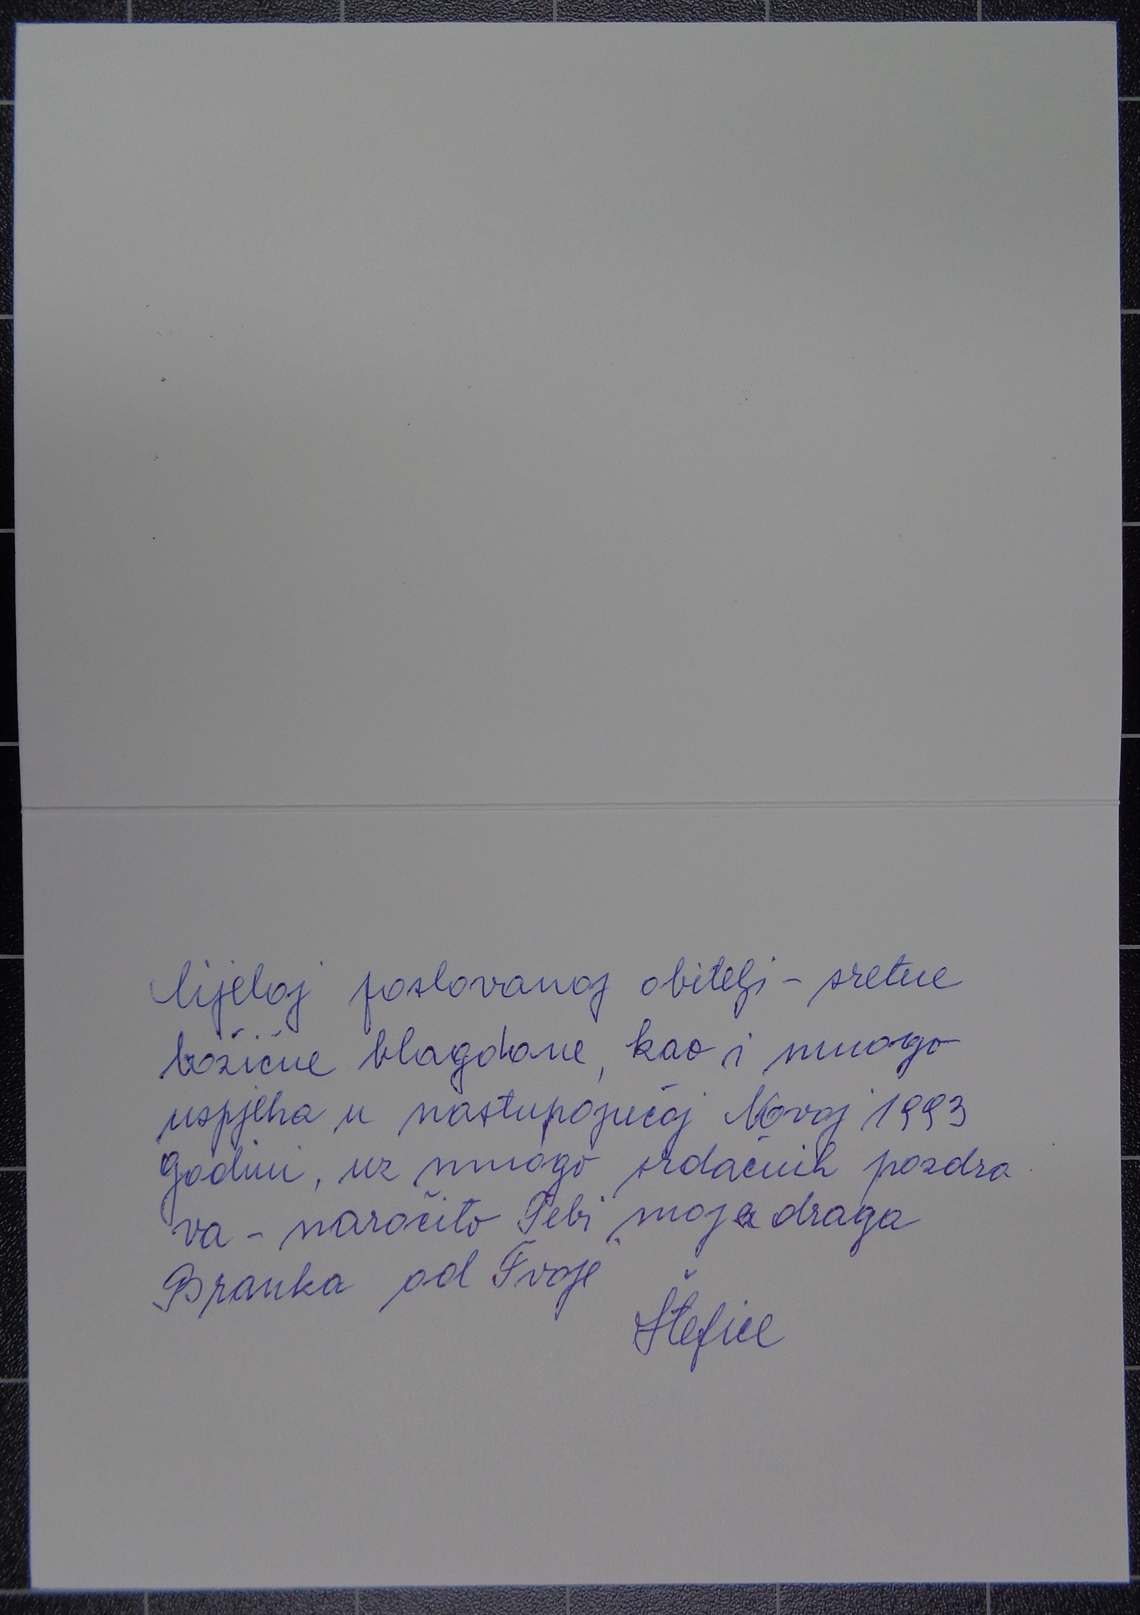 Cijeloj poslovanoj obitelji - sretne
božićne blagdane, kao i mnogo
uspjeha u nastupajućoj Novoj 1993
godini, uz mnogo srdačnih pozdra
va - naročito Tebi moja draga
Branka od Tvoje
Štefice